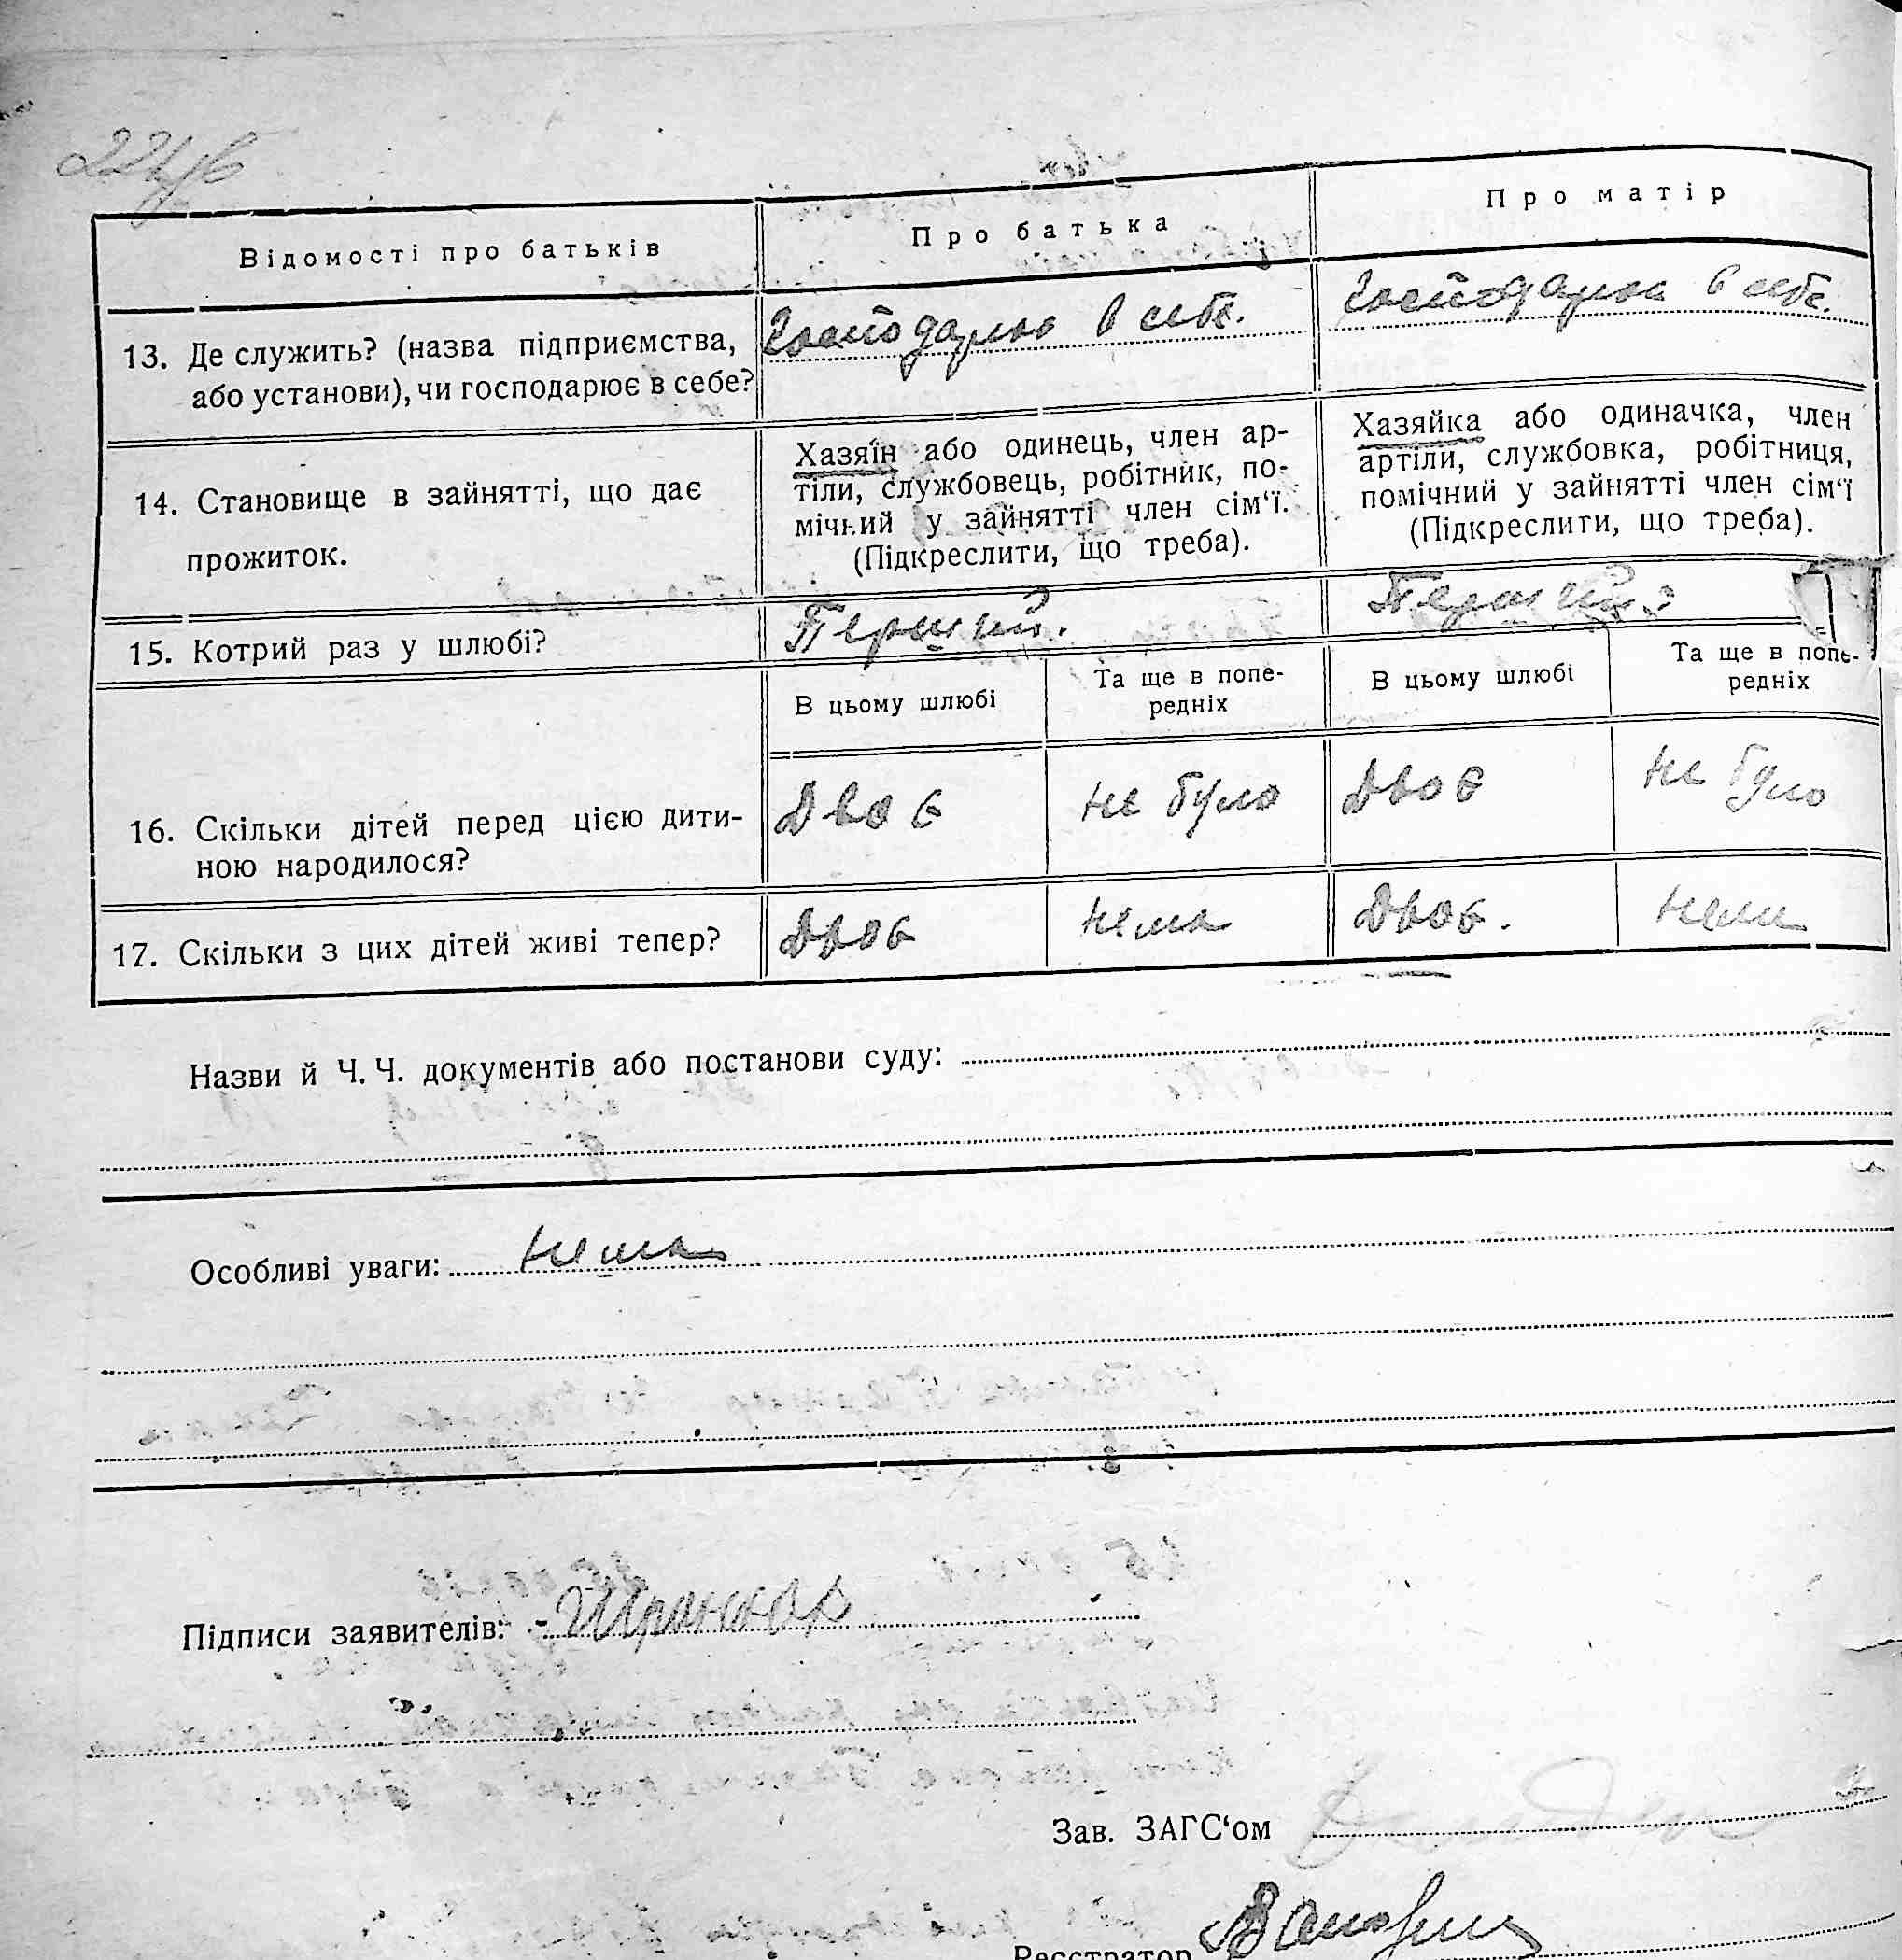 Відомості про батьків
Про батька
Про матір
13. Де служить? (назва підприємства,
або установи), чи господарює в себе?
господарює в себе.
господарює в себе.
14. Становище в зайнятті, що дає
прожиток.
Хазяїн або одинець, член ар-
тіли, службовець, робітник, по-
мічний у зайнятті член сім‘ї.
(Підкреслити, що треба).
Хазяйка або одиначка, член
артіли, службовка, робітниця,
помічний у зайнятті член сім‘ї
(Підкреслити, що треба).
15. Котрий раз у шлюбі?
Перший.
Перший.
В цьому шлюбі
Та ще в попе-
редніх
В цьому шлюбі
Та ще в попе-
редніх
16. Скільки дітей перед цією дити-
ною народилося?
Двоє
не було
Двоє
не було
17. Скільки з цих дітей живі тепер?
Двоє
нема
Двоє.
нема
Назви й Ч. Ч. документів або постанови суду:
Особливі уваги: нема
Підписи заявителів:
Зав. ЗАГС‘ом
Реєстратор